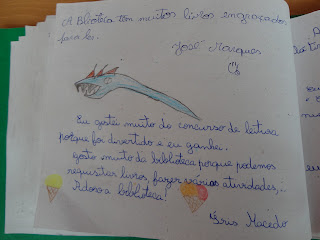 A Bblioteca tem muitos livros engraçados
para ler.
José Marques
Eu gostei muito do concurso de leitura
porque foi divertido e eu ganhei.
gosto muito da biblioteca porque podemos
requisitar livros, fazer vários atividades,
Adoro a biblioteca!
Íris Macedo